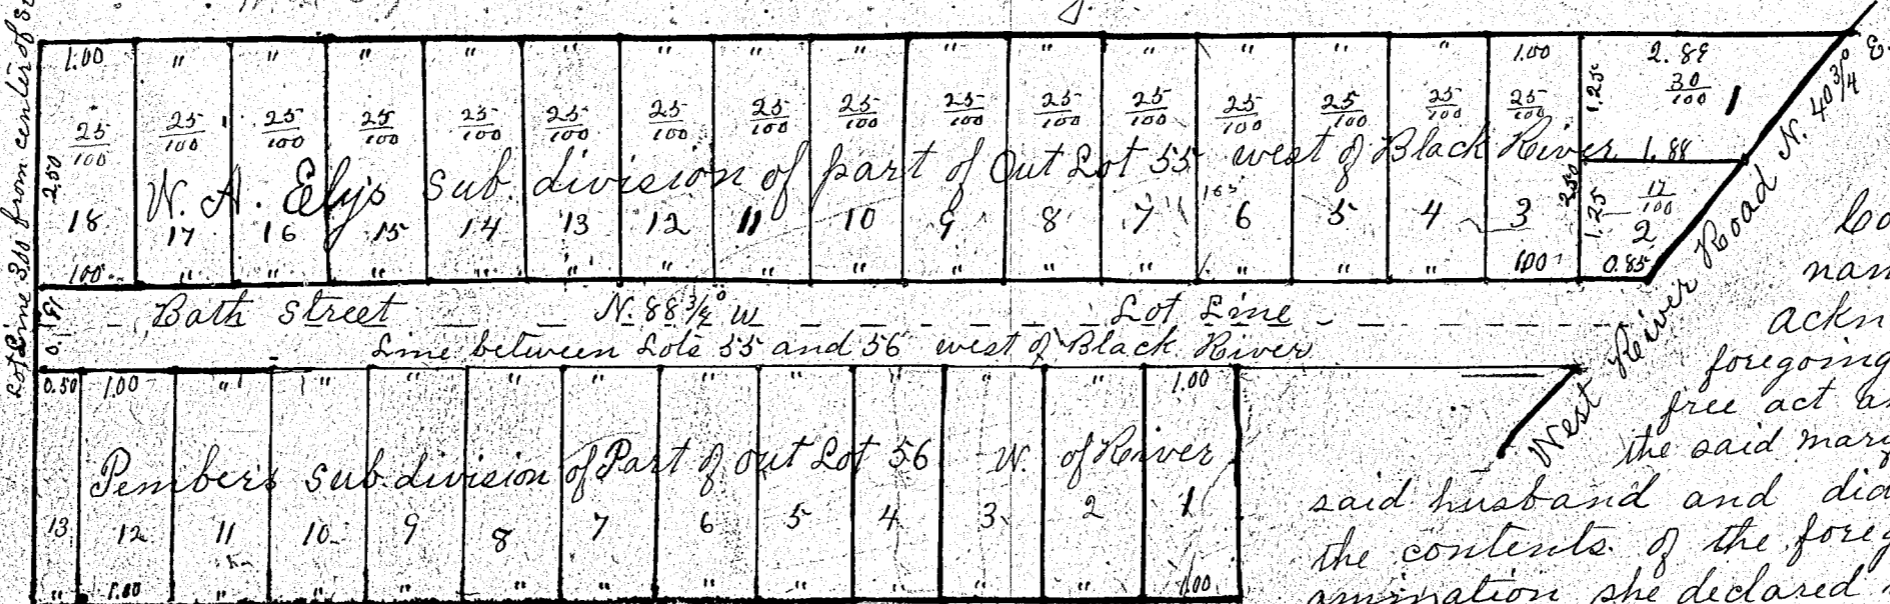 Lot Line 3.00 from center of
1.00 " " " " " " " " " " " " " " 1.00 2.89
25/100 25/100 25/100 25/100 25/100 25/100 25/100 25/100 25/100 25/100 25/100 25/100 25/100 25/100 25/100 25/100 1.25 30/100 1
2.50 W. A. Ely's Sub. division of part of Out Lot 55 west of Black River 1.88
2.50 1.25 17/100
18 17 16 15 14 13 12 11 10 9 8 7 6 5 4 3 2
1.00 " " " " " " " " " " " " " " 1.00 0.85
West River Road N. 40 3/4° E.
0.91 Bath Street N. 88 3/4° W Lot Line
Line between Lots 55 and 56 west of Black River
0.50 1.00 " " " " " " " " " " 1.00
Pember's Sub. division of Part of out Lot 56 W. of River
13 12 11 10 9 8 7 6 5 4 3 2 1
" 1.00 " " " " " " " " " " 1.00
ackn
foregoing
free act
the said mary
said husband and did
the contents of the foreg
amination she declared